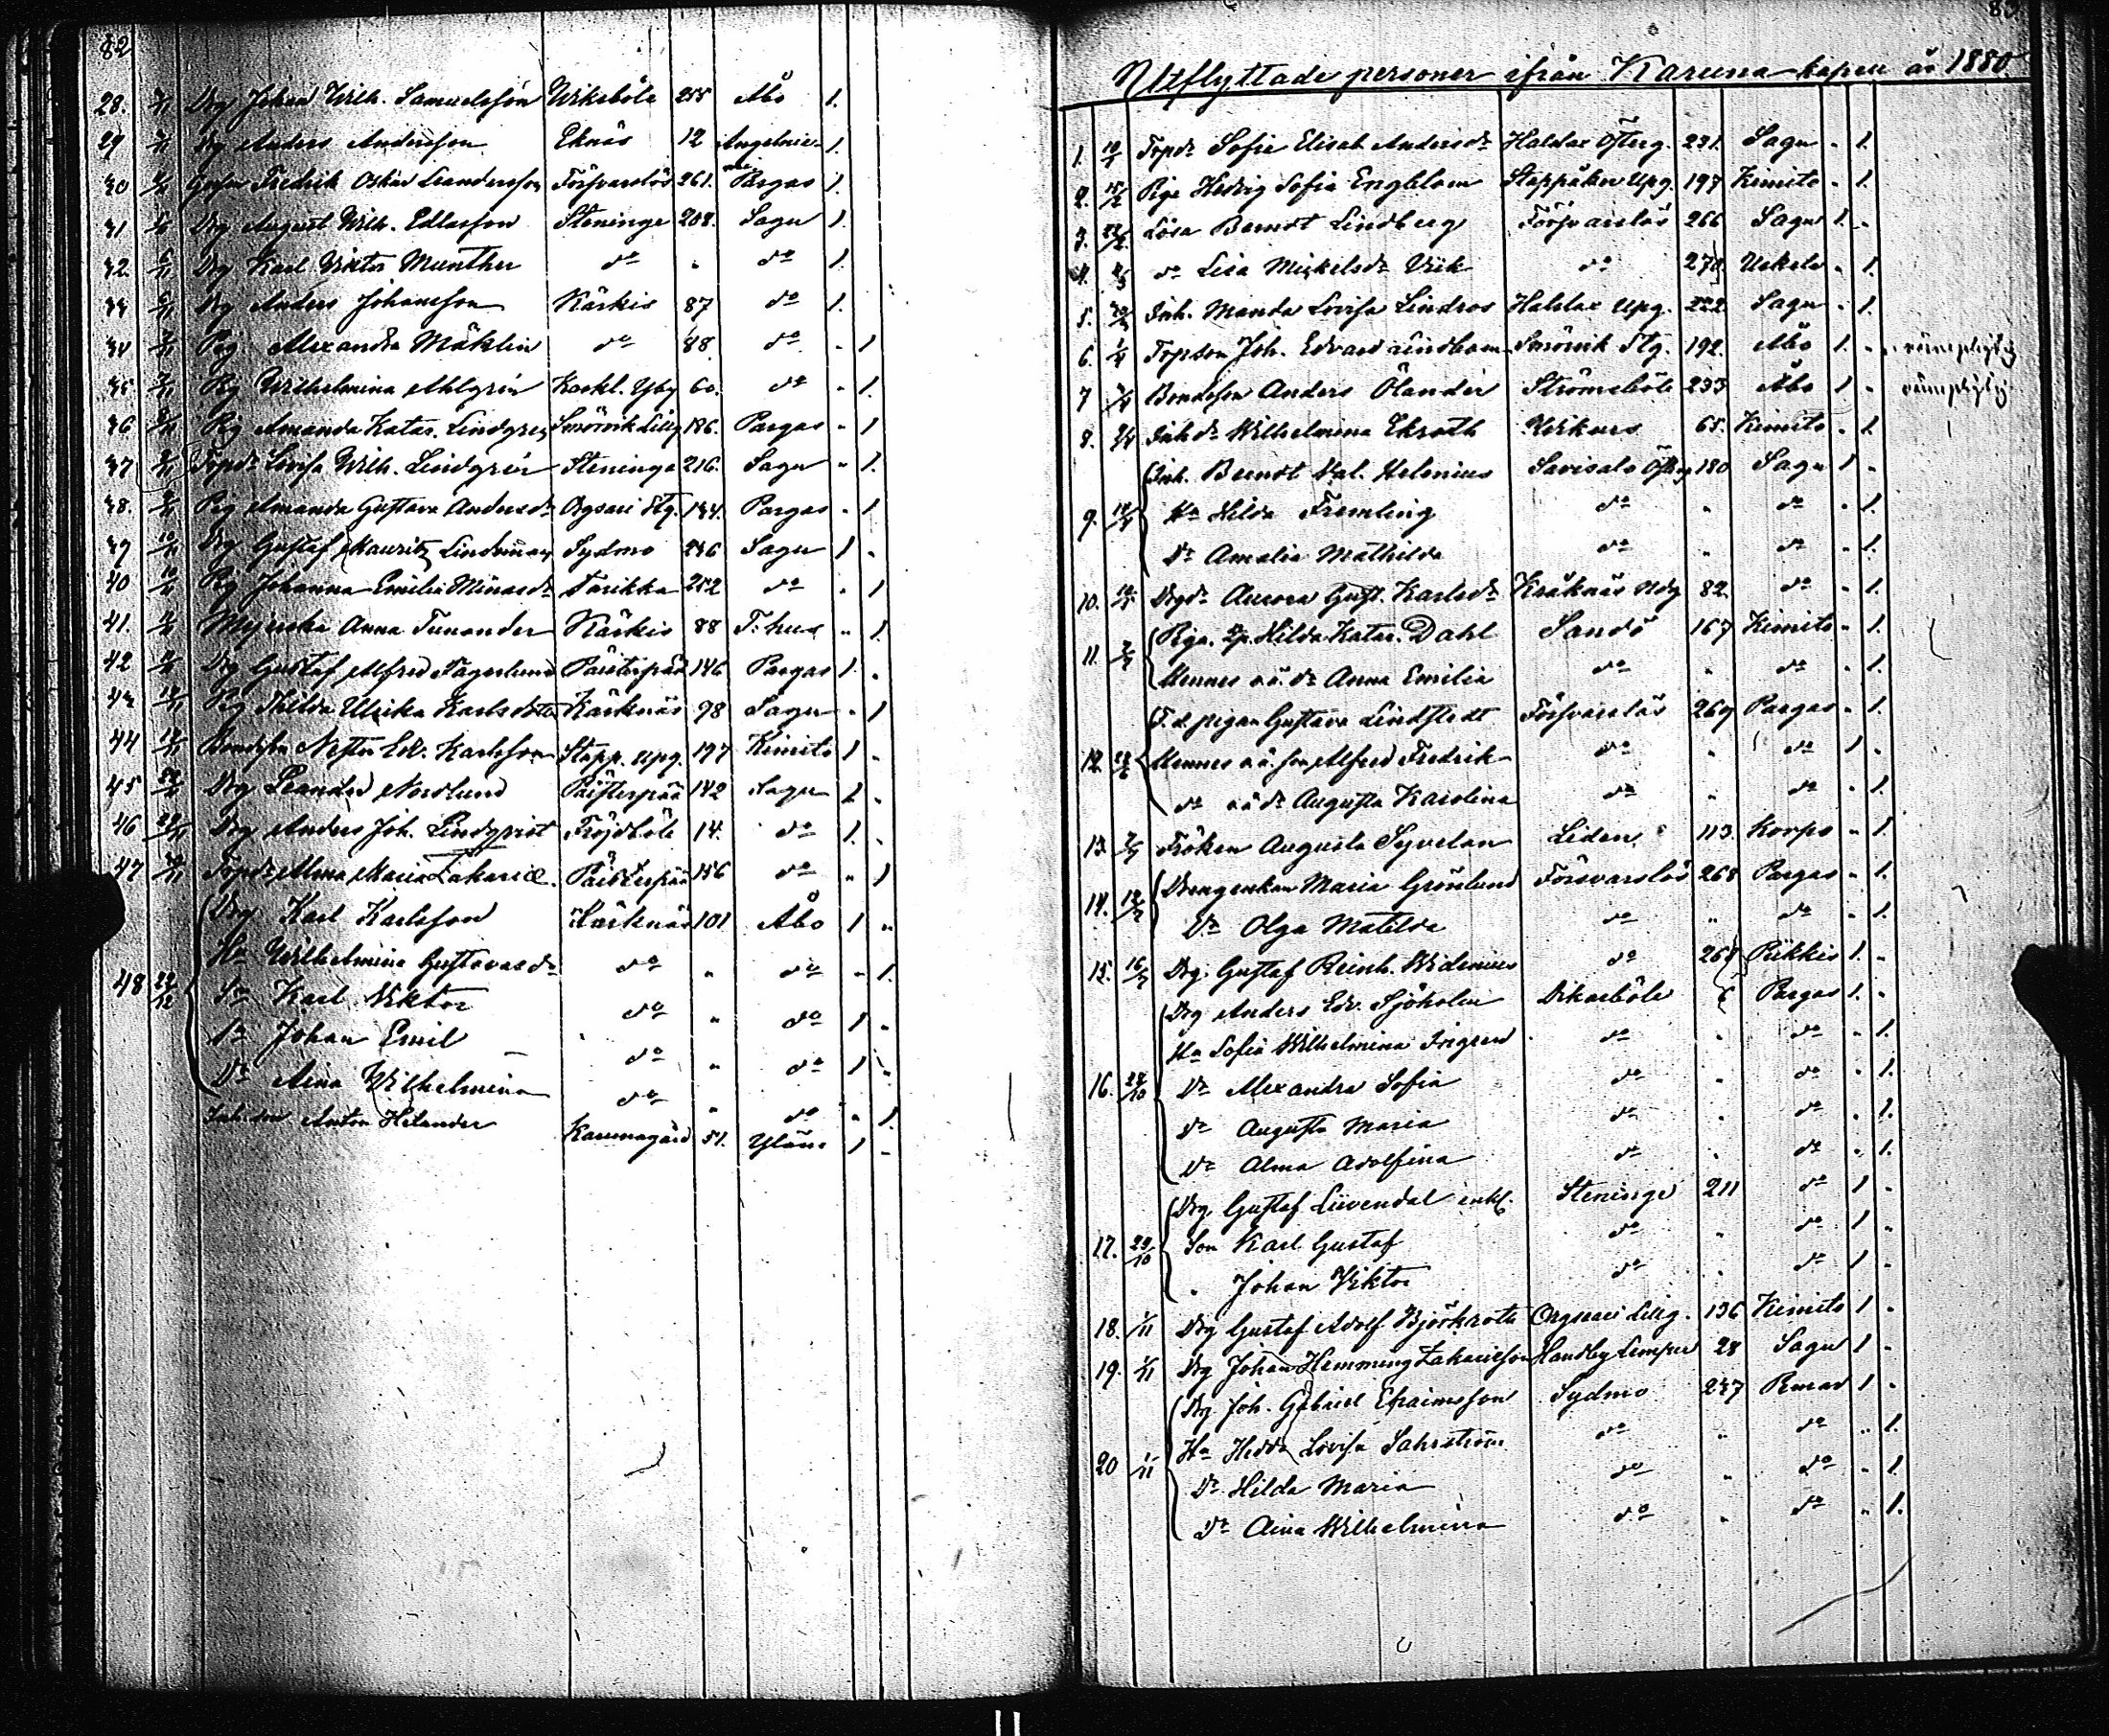 82
28. Drg Johan Wilh. Samuelsson Wiksböle 255 Åbo 1.
29 Drg Anders Andersson Eknäs 12 Angelnie- 1.
30 Fredrik Oskar Leandersson Försvarslös 261. Pargas 1.
31 Drg August Wilh. Edlasson Steninge 208. Sagu 1.
32. Drg Karl Viktor Munther do " do 1.
33 Drg Anders Johansson Kärkis 87 do 1.
34 Pig Alexandra Mäklin do 88 do " 1
35 Pig Wilhelmina Ahlgrén Kockl. Yby 60. do " 1.
36 Pig Amanda Katar. Lindgren Smörvik Lillg 186. Pargas " 1
37 Topdr Lovisa Wilh. Lindgrén Steninge 216. Sagu " 1.
38. Pig Amanda Gustava Andersdr Orgsari Stg. 134. Pargas " 1
39 Drg Gustaf Mauritz Lindeman Sydmo 246 Sagu 1 "
40 Pig Johanna Emilia Minasdr Tarikka 252 do " 1
41. Anna Tunander Kärkis 88 T. hus " 1.
42 Drg Gustaf Alfred Fagerlund Päisterpää 146 Pargas 1. "
43 Pig Thilda Ulrika Karlsdotter Käcknäs 98 Sagu " 1
44 Bondeson Nestor Ed. Karlsson Stapp. Upg. 197 Kimito 1 "
45 Drg Leander Nordlund Päisterpää 142 Sagu 1 "
46 Drg Anders Joh. Lindqvist Fröjdböle 14. do 1. "
47 Topdr Alma Maria Zakariæ. Päisterpää 156 do " 1
Drg Karl Karlsson Käcknäs 101 Åbo 1 "
Hu Wilhelmina Gustavasdr do " do " 1.
48 22/12 Sn Karl Viktor do " do 1 "
Sn Johan Emil do " do 1 "
Dr Aina Wilhelmina do " do " 1.
Inh. son Anton Helander Karunagård 51. Yläne 1 "
Utflyttade personer ifrån Karuna kapell år 1880.
1. 10/1 Topdr Sofie Elisab. Andersdr Haldax Österg. 231. Sagu " 1.
2. 15/2 Piga Hedvig Sofia Engblom Stappäkr Upg. 197 Kimito " 1.
3. 22/2 Lösa Berndt Lindberg Försvarslös 266 Sagu 1. "
4. do Lisa Mickelsdr Vik do 270 Uskela " 1.
5. Inh. Manda Lovisa Lindros Haldax Upg. 222. Sagu " 1.
6. Topson Joh. Edvard Lindbom Smörvik Stg. 192. Åbo 1. " värnepligtig
7 Bondeson Anders Ölander Strömsböle 233 Åbo 1 " värnepligtig
8. Inh dr Wilhelmina Ekroth Kirkurs 65. Kimito " 1.
Inh. Berndt Val. Helenius Savisalo Österg 180 Sagu 1 "
9. Hu Hilda Fremling do " do " 1.
Dr Amalia Mathilda do " do " 1.
10. Drgdr Aurora Gust. Karlsdr Kråknäs Ndg 82. do " 1.
11. Piga Hilda Katar. Dahl Sandö 167 Kimito " 1.
Hennes o.ä. dr Anna Emilia do " do " 1.
F.d. pigan Gustava Lindstedt Försvarslös 269 Pargas " 1.
12. Hennes o.ä. son Alfred Fredrik do " do 1 "
do o.ä. dr Augusta Karolina do " do " 1.
13. Fröken Augusta Syvelan Liden 113. Korpo " 1.
14. Drengenkan Maria Grönlund Försvarslös 268 Pargas " 1.
Dr Olga Matilda do " do " 1.
15. 16/ Drg. Gustaf Reinh. Widenius do 268 Pikkis 1. "
Drg Anders Edv. Sjöholm Dikarböle 6 Pargas 1. "
Hu Sofia Wilhelmina Irigren do " do " 1.
16. 28/10 Dr Alexandra Sofia do " do " 1.
Dr Augusta Maria do " do " 1.
Dr Alma Adolfina do " do " 1.
Drg. Gustaf Liivendal enkl. Steninge 211 do 1 "
17. 29/10 Son Karl Gustaf do " do 1 "
" Johan Viktor do " do 1 "
18. 1/11 Drg Gustaf Adolf Björkroth Orgsari Lillg. 136 Kimito 1 "
19. 1/11 Drg Johan Hemming Zakariesson Handby Lemper 28 Sagu 1 "
Drg Joh. Gabriel Efraimsson Sydmo 247 Pemar 1 "
20 1/11 Hu Hedda Lovisa Sahrström do " do " 1.
Dr Hilda Maria do " do " 1.
Dr Aina Wilhelmina do " do " 1.